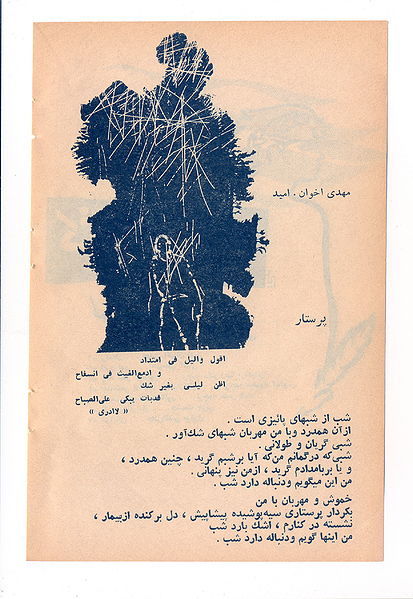 مهدی اخوان . امید
پرستار
اقول والیل فی امتداد
و ادمع‌الغیث فی انسفاح
اظن لیلی بغیر شك
قدبات یبکی علی‌الصباح
« لاادری »
شب از شبهای پائیزی است .
ازآن همدرد وبا من مهربان شبهای شك‌آور .
شبی گریان و طولانی .
شبی‌که درگمانم من‌که آیا برشبم گرید ، چنین همدرد ،
و یا بربامدادم گرید ، ازمن نیز پنهانی .
من این میگویم ودنباله دارد شب .
خموش و مهربان با من
بکردار پرستاری سیه‌پوشیده پیشاپیش ، دل برکنده ازبیمار ،
نشسته در کنارم ، اشك بارد شب
من اینها گویم ودنباله دارد شب .